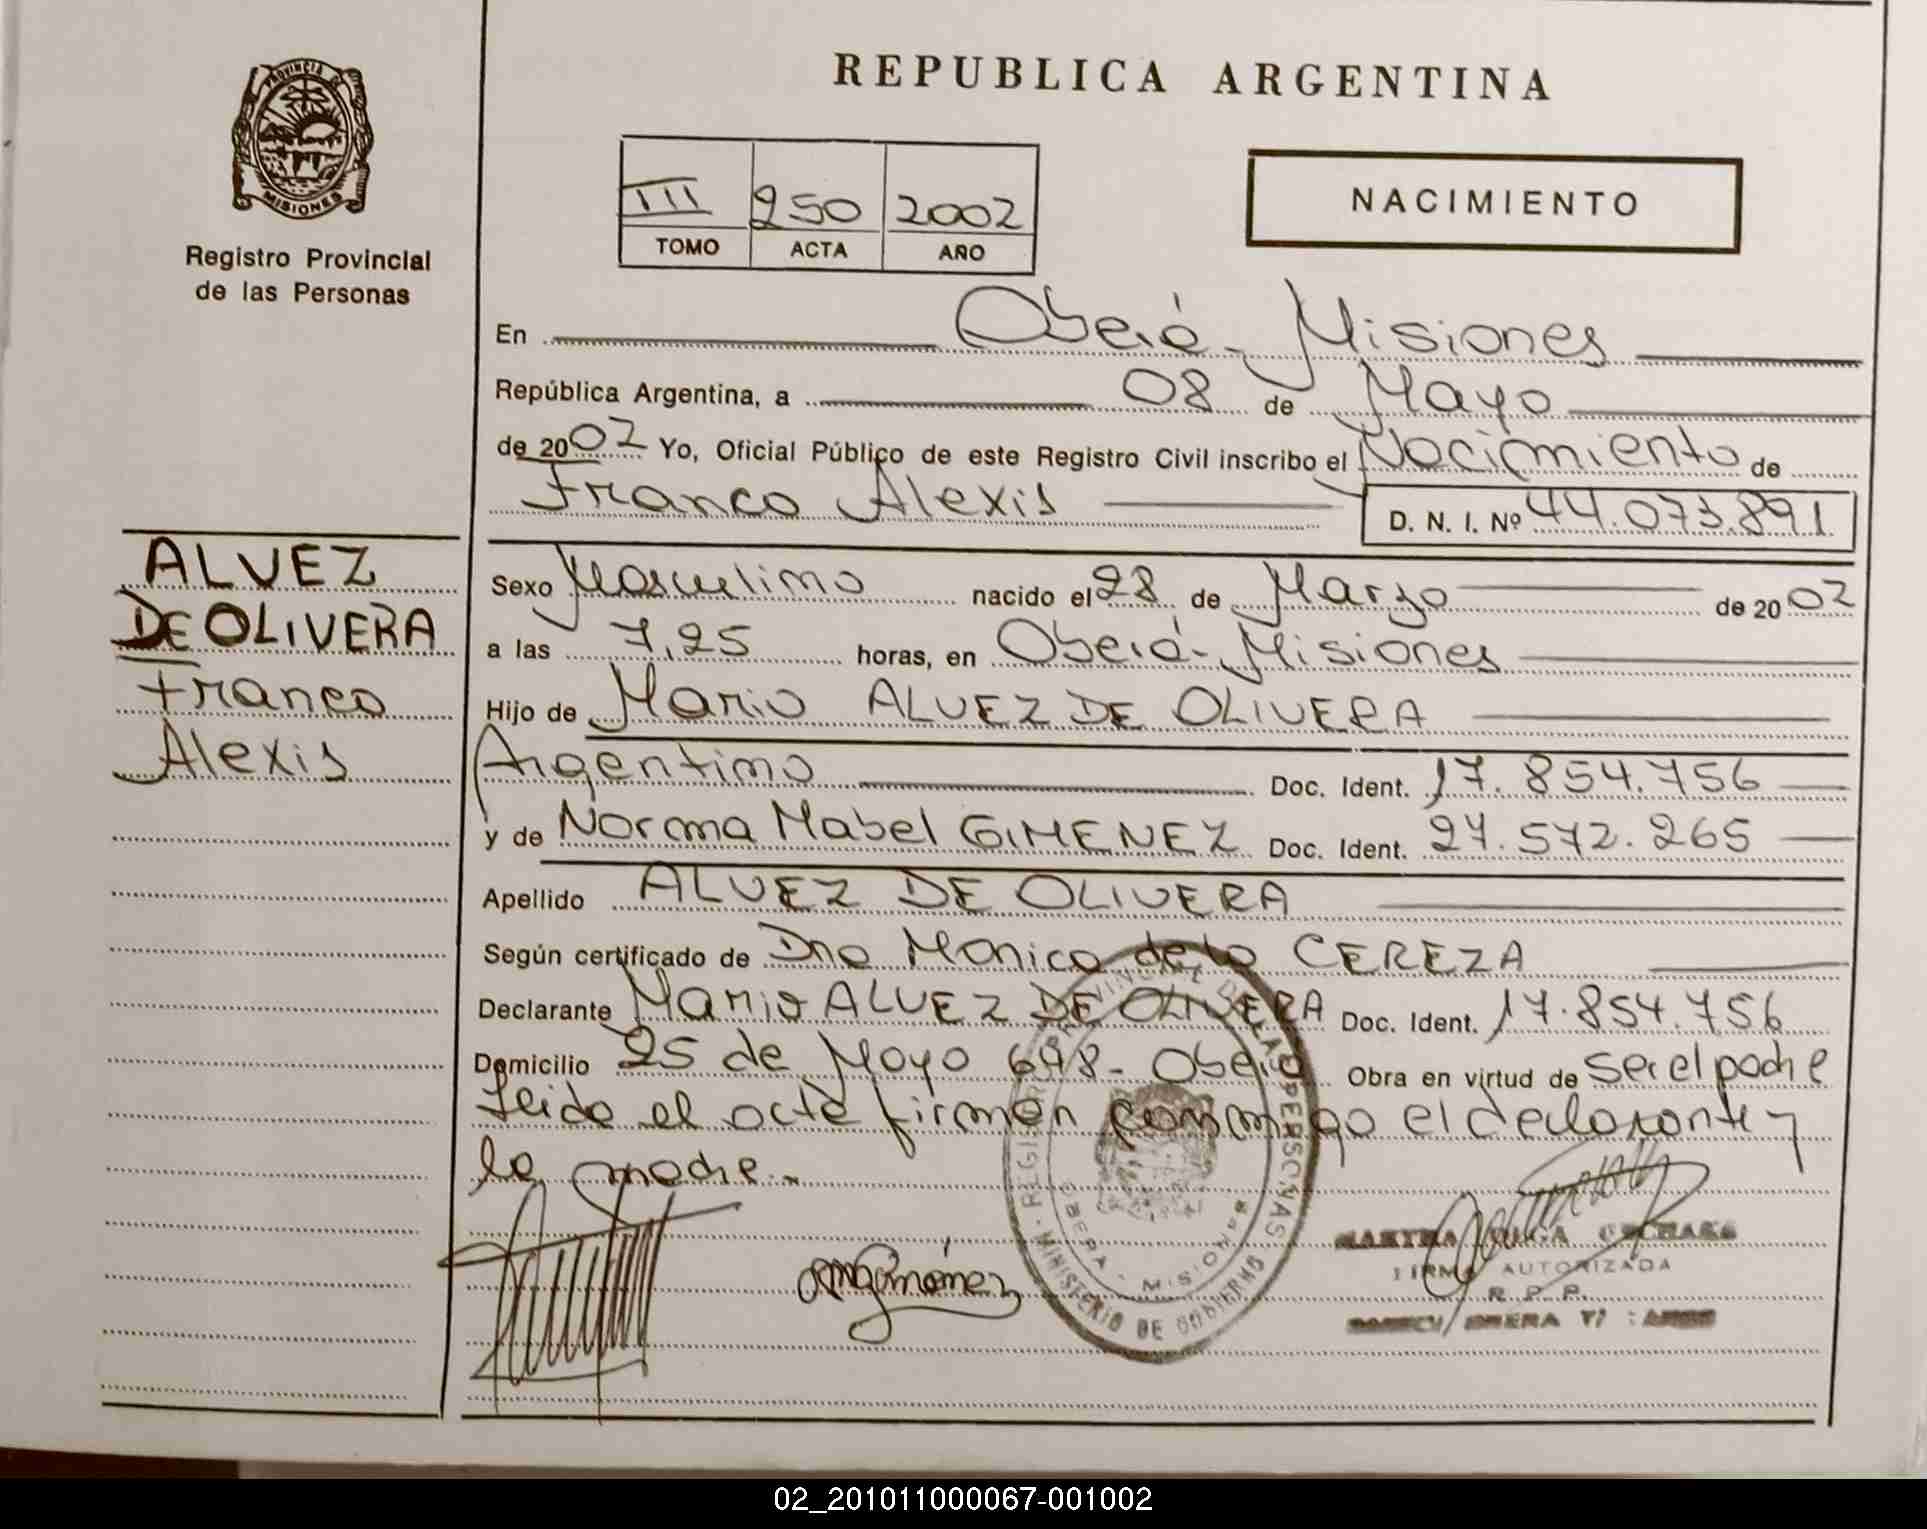 REPUBLICA ARGENTINA
PROVINCIA DE
MISIONES
Registro Provincial
de las Personas
III 250 2002
TOMO ACTA AÑO
NACIMIENTO
En Oberá - Misiones
República Argentina, a 08 de Mayo
de 2002 Yo, Oficial Público de este Registro Civil inscribo el Nacimiento de
Franco Alexis D. N. I. Nº 44.073.891
ALVEZ
DE OLIVERA
Franco
Alexis
Sexo Masculino nacido el 28 de Marzo de 2002
a las 7,25 horas, en Oberá - Misiones
Hijo de Mario ALVEZ DE OLIVERA
Argentino Doc. Ident. 17.854.756
y de Norma Mabel GIMENEZ Doc. Ident. 27.572.265
Apellido ALVEZ DE OLIVERA
Según certificado de Dra Monica de la CEREZA
Declarante Mario ALVEZ DE OLIVERA Doc. Ident. 17.854.756
Domicilio 25 de Mayo 698 - Oberá Obra en virtud de ser el padre
Leida el acta firman conmigo el declarante y
la madre.-
REGISTRO PROVINCIAL DE LAS PERSONAS
MINISTERIO DE GOBIERNO
OBERA - MISIONES
MARTHA OLGA
FIRMA AUTORIZADA
R. P. P.
02_201011000067-001002